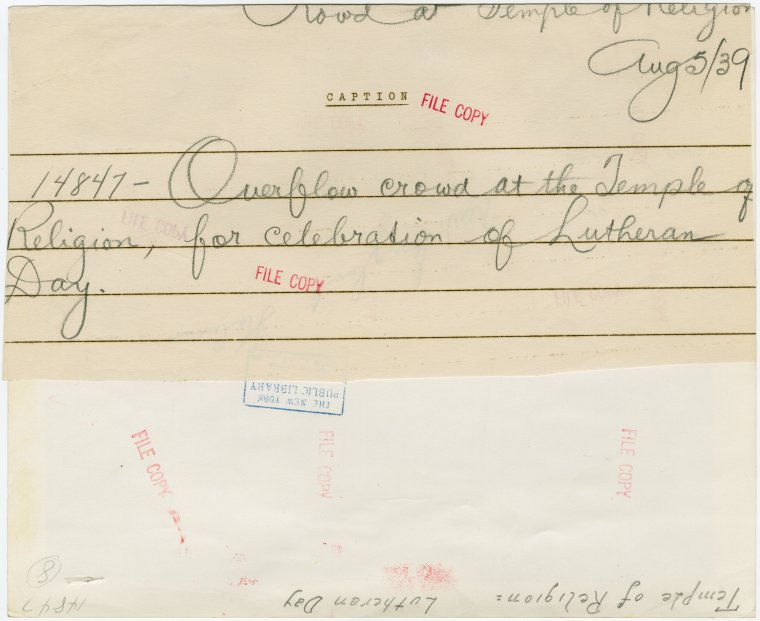 Crowd at Temple of Religion
Aug 5/39
CAPTION
FILE COPY
14847 - Overflow crowd at the Temple of
Religion, for celebration of Lutheran
Day.
FILE COPY
FILE COPY
FILE COPY
THE NEW YORK
PUBLIC LIBRARY
FILE COPY
FILE COPY
FILE COPY
Temple of Religion: Lutheran Day
8
14847